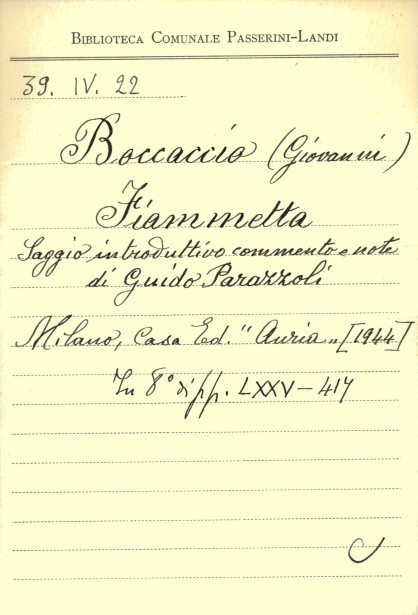 BIBLIOTECA COMUNALE PASSERINI-LANDI
39. IV. 22
Boccaccio (Giovanni)
Fiammetta
Saggio introduttivo commento e note
di Guido Parazzoli
Milano, Casa Ed. "Auria" [1944]
In 8° di pp. LXXV-417